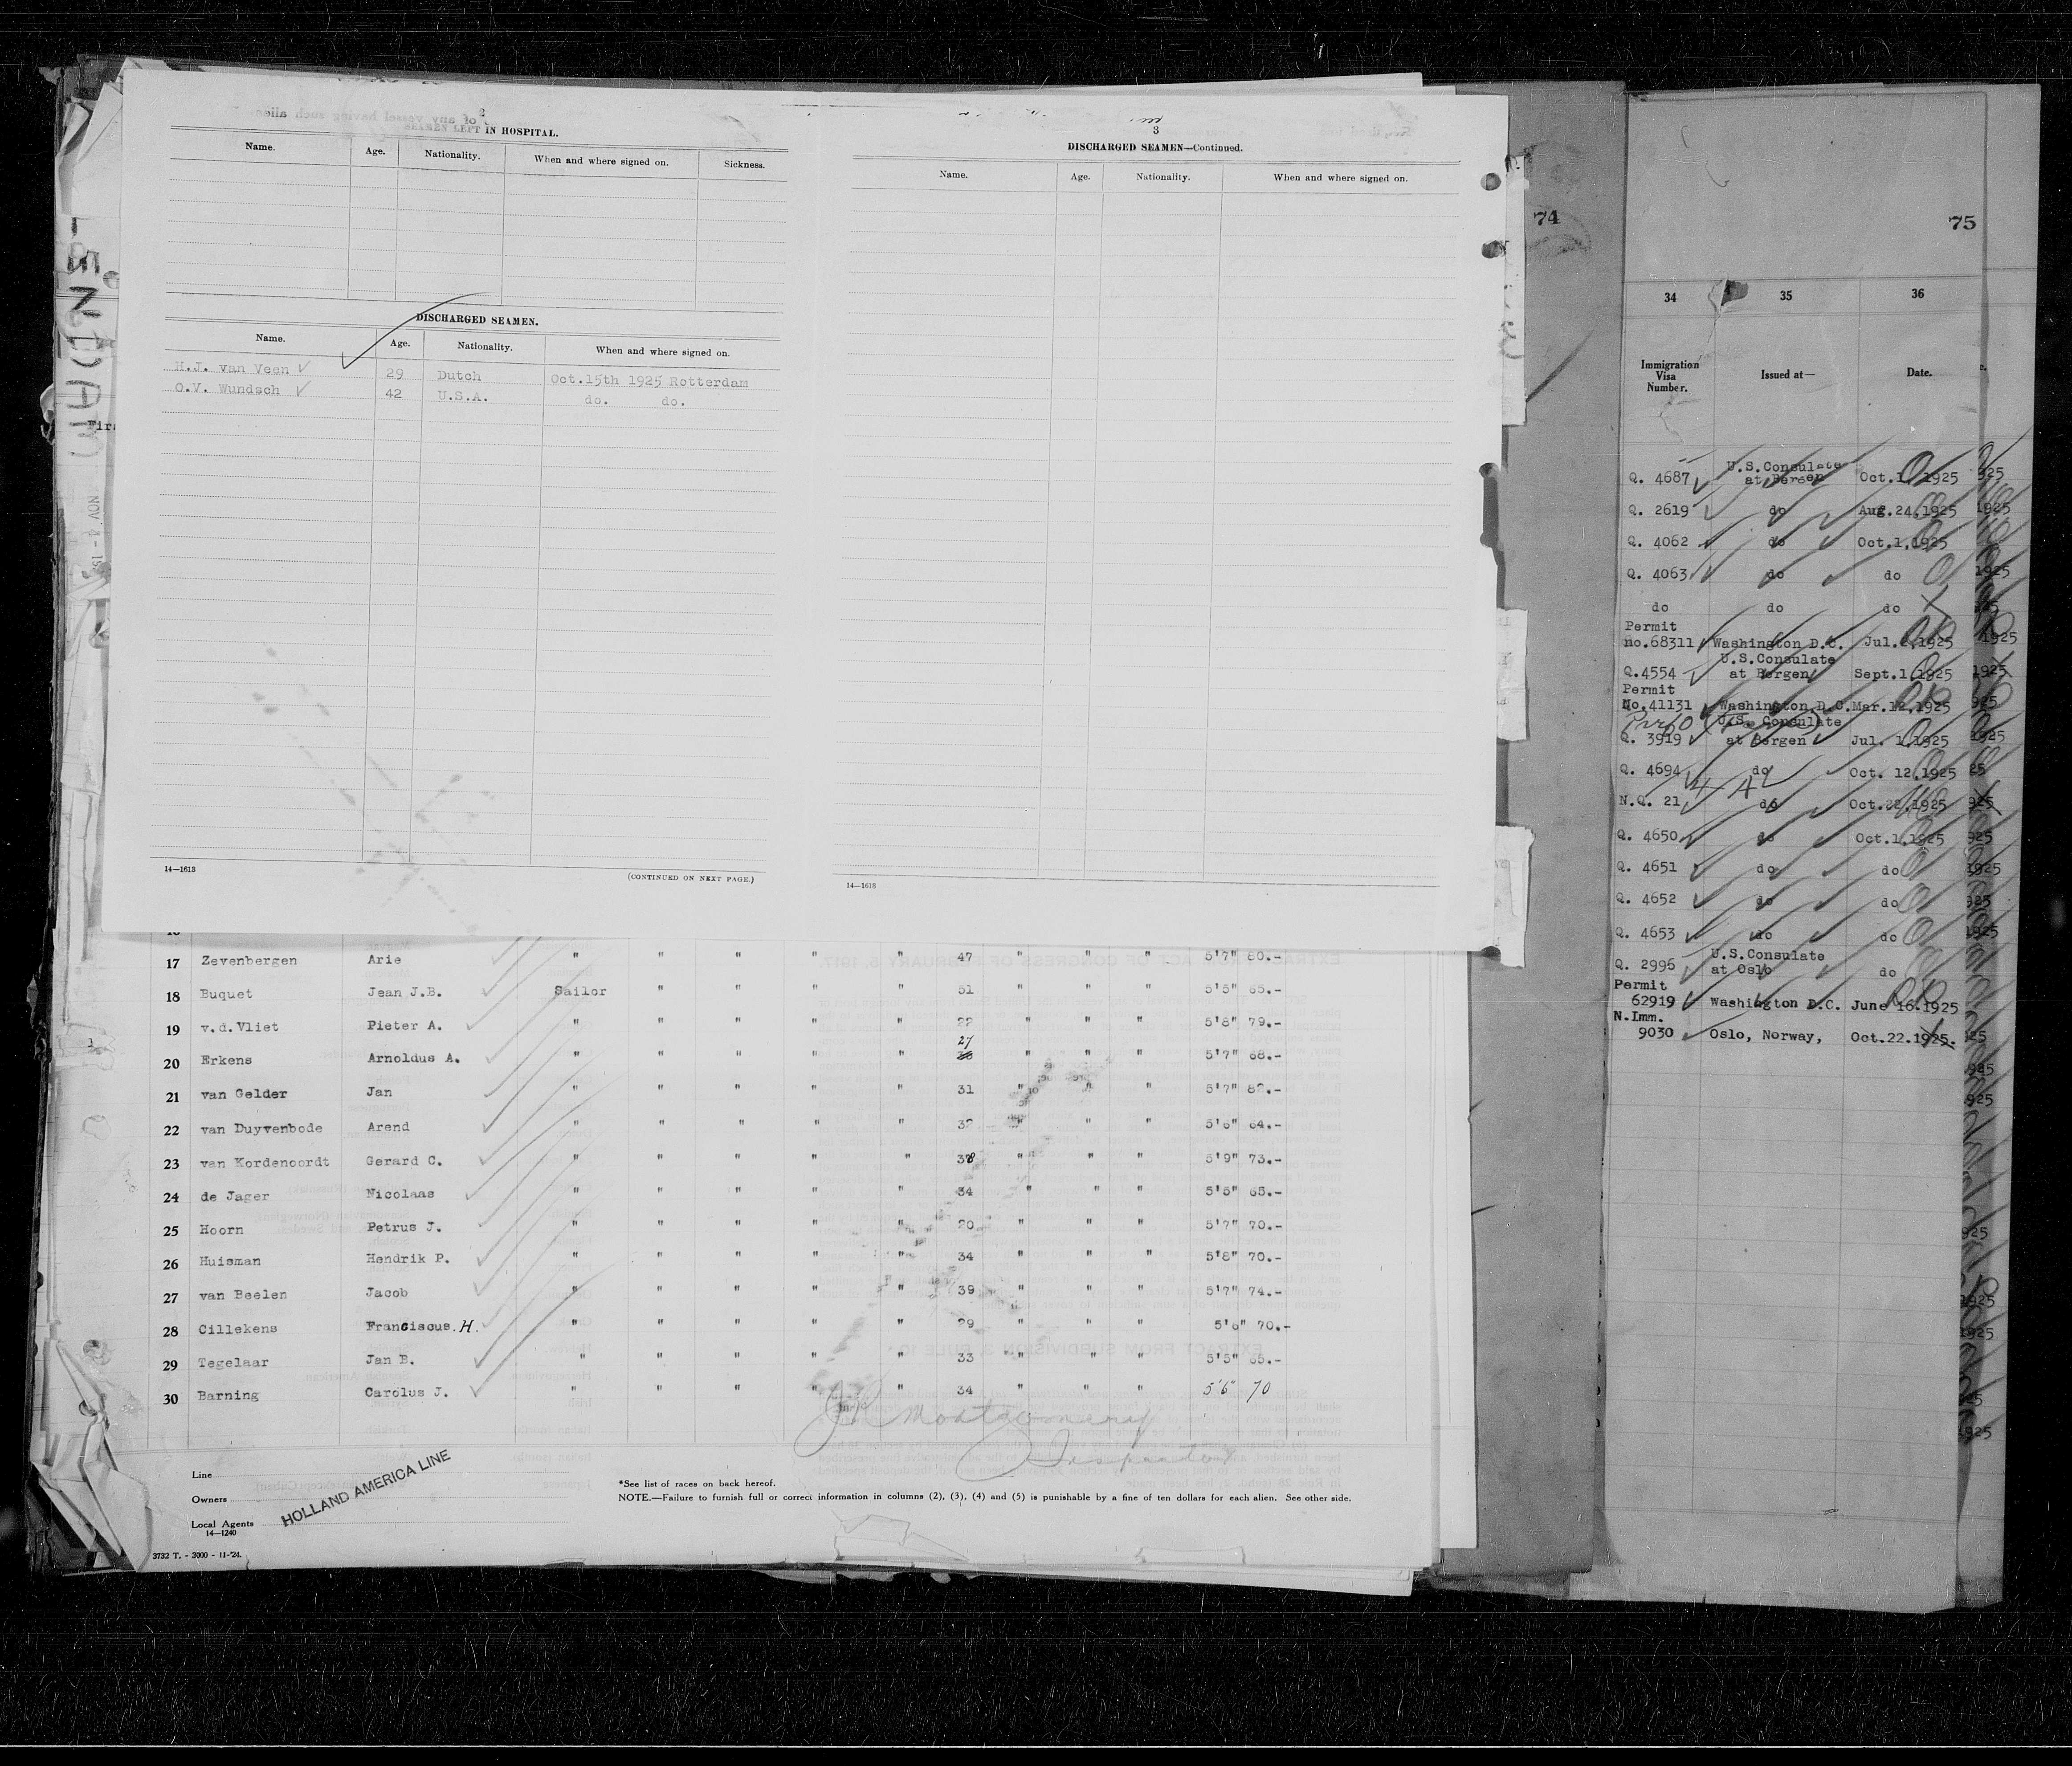 2
of any vessel having such alien
SEAMEN LEFT IN HOSPITAL.
Name. Age. Nationality. When and where signed on. Sickness.
DISCHARGED SEAMEN.
Name. Age. Nationality. When and where signed on.
H.J. van Veen 29 Dutch Oct.15th 1925 Rotterdam
O.V. Wundsch 42 U.S.A. do. do.
14—1613
(CONTINUED ON NEXT PAGE.)
3
DISCHARGED SEAMEN—Continued.
Name. Age. Nationality. When and where signed on.
14—1613
17 Zevenbergen Arie " " " " " 47 " " " 5'7" 80.-
18 Buquet Jean J.B. Sailor " " " " 51 " " " 5'5" 65.-
19 v.d.Vliet Pieter A. " " " " " 22 " " " 5'8" 79.-
20 Erkens Arnoldus A. " " " " " 27 " " " 5'7" 68.-
21 van Gelder Jan " " " " " 31 " " " 5'7" 82.-
22 van Duyvenbode Arend " " " " " 32 " " " 5'6" 64.-
23 van Kordenoordt Gerard C. " " " " " 38 " " " 5'9" 73.-
24 de Jager Nicolaas " " " " " 34 " " " 5'5" 65.-
25 Hoorn Petrus J. " " " " " 20 " " " 5'7" 70.-
26 Huisman Hendrik P. " " " " " 34 " " " 5'8" 70.-
27 van Beelen Jacob " " " " " 39 " " " 5'7" 74.-
28 Cillekens Franciscus.H. " " " " " 29 " " " 5'6" 70.-
29 Tegelaar Jan B. " " " " " 33 " " " 5'5" 65.-
30 Barning Carolus J. " " " " " 34 " " " 5'6" 70
Montgomery
Inspector
Line
Owners
Local Agents
HOLLAND AMERICA LINE
14—1240
3732 T. - 3000 - 11-'24.
*See list of races on back hereof.
NOTE.—Failure to furnish full or correct information in columns (2), (3), (4) and (5) is punishable by a fine of ten dollars for each alien. See other side.
74
75
34 35 36
Immigration Visa Number. Issued at— Date.
Q. 4687 U.S.Consulate at Bergen Oct.1,1925
Q. 2619 do Aug.24,1925
Q. 4062 do Oct.1,1925
Q. 4063 do do
do do do
Permit
no.68311 Washington D.C. Jul.2,1925
Q.4554 U.S.Consulate at Bergen Sept.1,1925
Permit
No.41131 Washington D.C. Mar.12,1925
Q. 3919 U.S. Consulate at Bergen Jul. 1,1925
Q. 4694 do Oct. 12,1925
N.Q. 21 do Oct.22,1925
Q. 4650 do Oct.1,1925
Q. 4651 do do
Q. 4652 do do
Q. 4653 do do
Q. 2996 U.S.Consulate at Oslo do
Permit
62919 Washington D.C. June 16.1925
N.Imm.
9030 Oslo, Norway, Oct.22.1925.